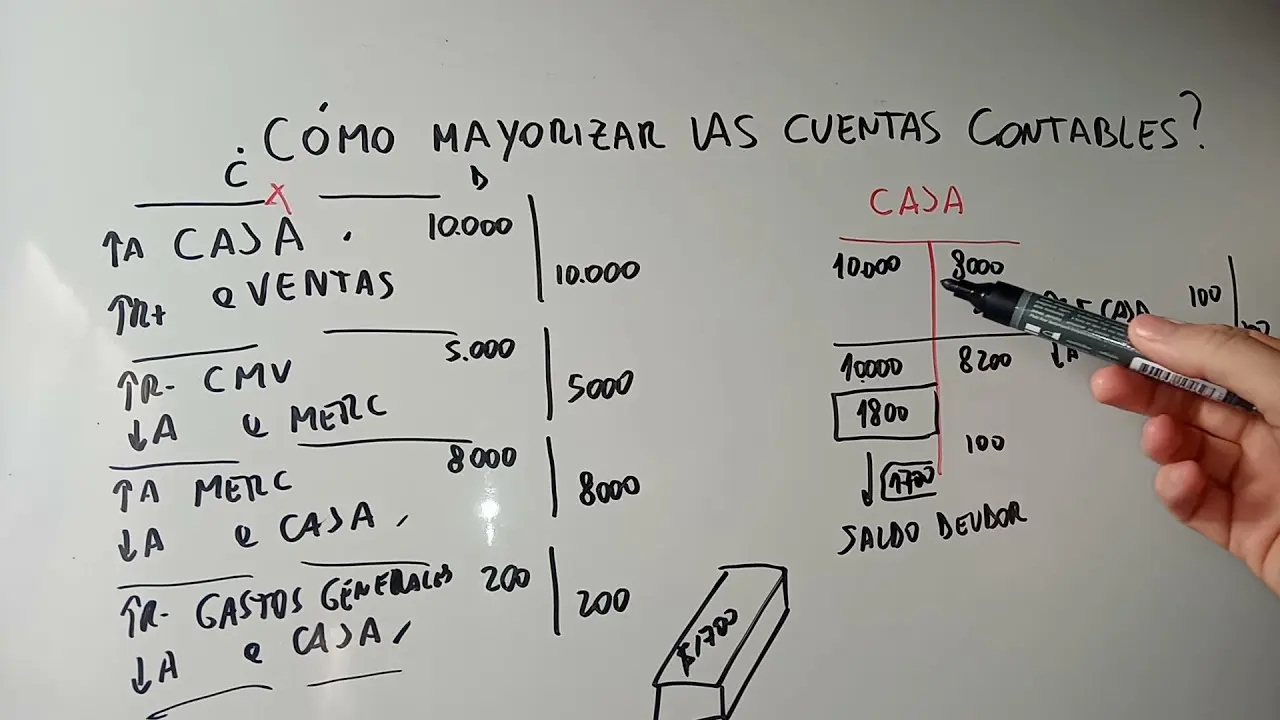 ¿CÓMO MAYORIZAR LAS CUENTAS CONTABLES?
C X D
↑A CAJA 10.000
↑R+ a VENTAS 10.000
↑R- CMV 5.000
↓A a MERC 5000
↑A MERC 8000
↓A a CAJA 8000
↑R- GASTOS GENERALES 200 200
↓A a CAJA
CAJA
10.000 8000
CAJA 100
10.000 8200 ↓A
1800
100
1700
SALDO DEUDOR
$1700